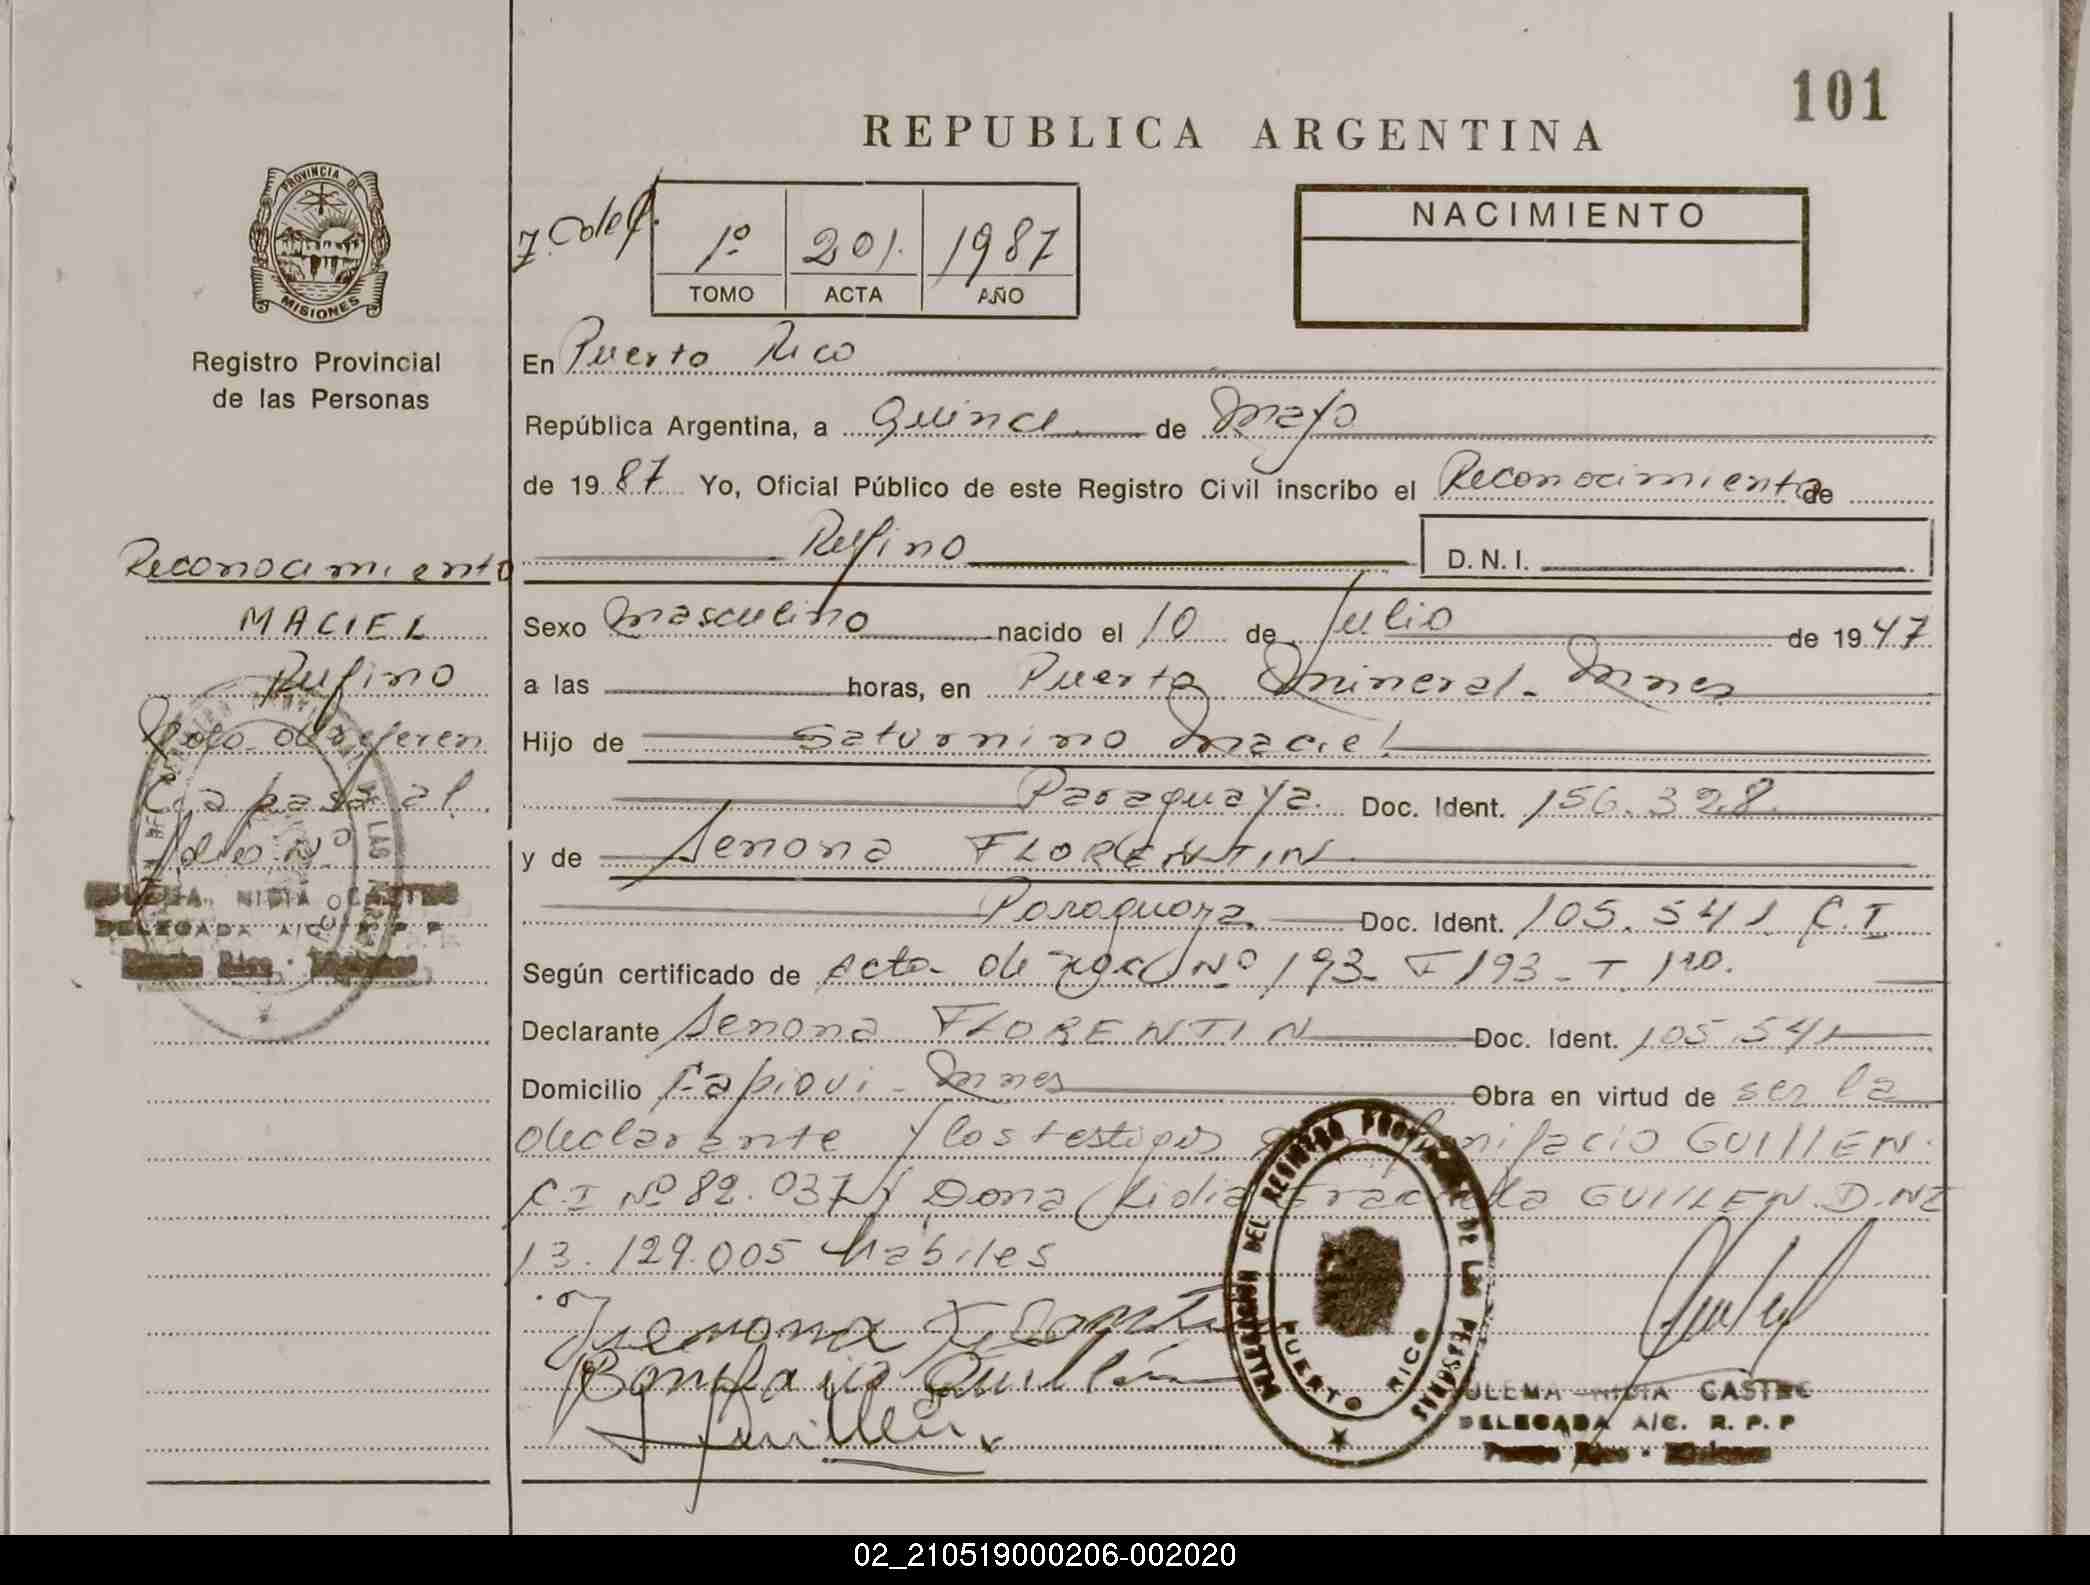 101
REPUBLICA ARGENTINA
PROVINCIA DE
MISIONES
Registro Provincial
de las Personas
1º 201. 1987
TOMO ACTA AÑO
NACIMIENTO
En Puerto Rico
República Argentina, a quince de Mayo
de 1987 Yo, Oficial Público de este Registro Civil inscribo el Reconocimiento de
Rufino D.N.I.
Sexo Masculino nacido el 10 de Julio de 1947
a las horas, en Puerto Mineral - Mnes
Hijo de Saturnino Maciel
Paraguaya. Doc. Ident. 156.328.
y de Senona FLORENTIN
Paraguaya Doc. Ident. 105.541 C.I
Según certificado de acta de Nº 193- F 193 - T
Declarante Senona FLORENTIN Doc. Ident. 105.541
Domicilio Capiovi - Mnes Obra en virtud de ser la
declarante y los testigos Bonifacio GUILLEN
C.I Nº 82.037 y Dona Lidia Graciela GUILLEN. D.NI
13.129.005 habiles
Reconocimiento
MACIEL
Rufino
referen
cia pasa al
folio Nº
NIDIA CASTRO
DELEGADA A/C. R. P. P
Puerto Rico - Misiones
Bonifacio Guillén
Guillén
DELEGACION DEL REGISTRO PROVINCIAL DE LAS PERSONAS
PUERTO RICO
ULEMA NIDIA CASTRO
DELEGADA A/C. R. P. P
Puerto Rico - Misiones
02_210519000206-002020